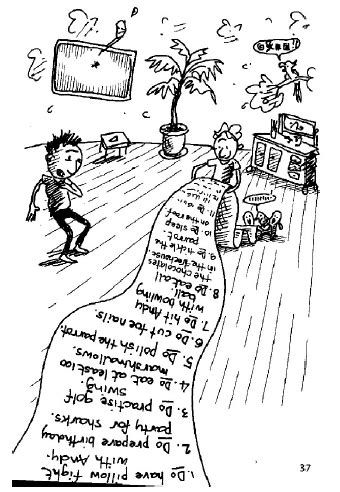 1. Do have pillow fight
with Andy.
2. Do prepare birthday
party for sharks.
3. Do practise golf
swing.
4. Do eat at least 100
marshmallows.
5. Do polish the parrot.
6. Do cut toe nails.
7. Do hit Andy
with bowling
ball
8. Do eat all
the chocolates
in the treehouse.
9. Do tickle the
parrot.
10. Do sleep
on the roof.
11. Do
37